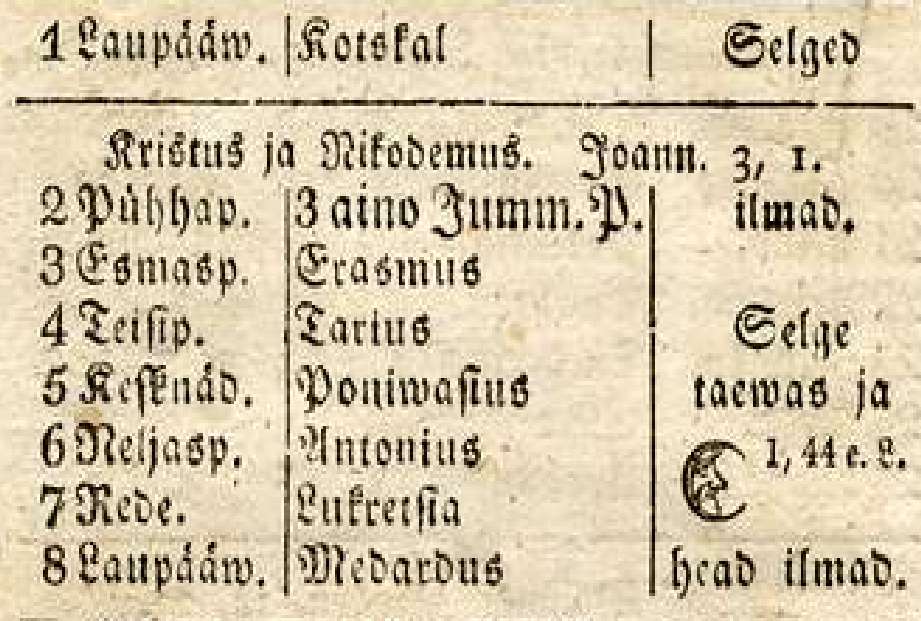 1 Laupääw. Kotskal Selged
Kristus ja Nikodemus. Joann. 3, 1.
2 Pühhap. 3 aino Jumm. P. ilmad.
3 Esmasp. Erasmus
4 Teisip. Tarius Selge
5 Keskнäd. Poniwasius taewas ja
6 Neljasp. Antonius 1, 44 e. L.
7 Rede. Lukretsia
8 Laupääw. Medardus head ilmad.